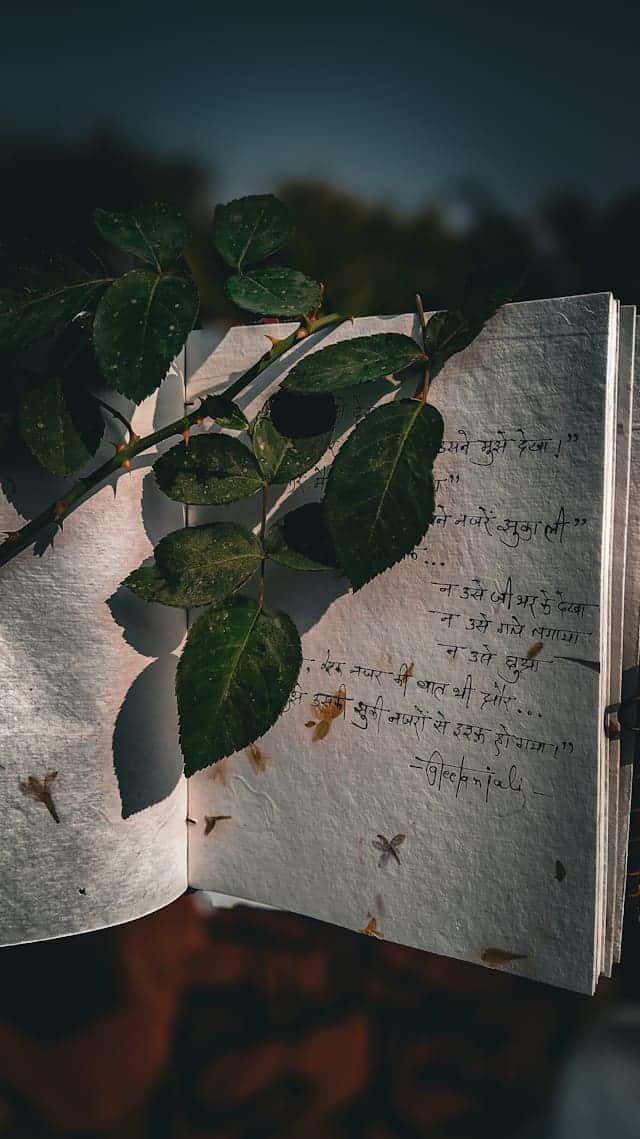 उसने मुझे देखा।”
”
ने नजरें झुका ली”
...
न उसे जी भर के देखा
न उसे गले लगाया
न उसे छुआ
नजर की बात थी और...
उसकी झुकी नजरों से इश्क हो गया।”
-Geetanjali-